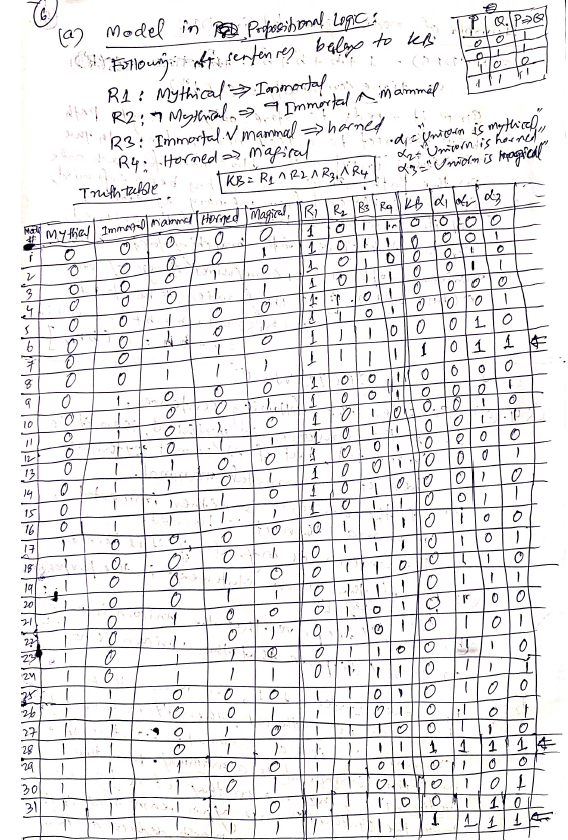 6
(a) Model in Propositional Logic:
Following sentences belongs to KB
P Q P⇒Q
0 0 1
0 1 1
1 0 0
1 1 1
R1: Mythical ⇒ Immortal
R2: ¬ Mythical ⇒ ¬ Immortal ∧ mammal
R3: Immortal ∨ mammal ⇒ horned
R4: Horned ⇒ magical
α1 = "Unicorn is mythical"
α2 = "Unicorn is horned"
α3 = "Unicorn is magical"
KB = R1 ∧ R2 ∧ R3 ∧ R4
Truth table
Model # Mythical Immortal mammal Horned Magical R1 R2 R3 R4 KB α1 α2 α3
1 0 0 0 0 0 1 0 1 1 0 0 0 0
2 0 0 0 0 1 1 0 1 1 0 0 0 1
3 0 0 0 1 0 1 0 1 0 0 0 1 0
4 0 0 0 1 1 1 0 1 1 0 0 1 1
5 0 0 1 0 0 1 1 0 1 0 0 0 0
6 0 0 1 0 1 1 1 0 1 0 0 0 1
7 0 0 1 1 0 1 1 1 0 0 0 1 0
8 0 0 1 1 1 1 1 1 1 1 0 1 1 ⇐
9 0 1 0 0 0 1 0 0 1 0 0 0 0
10 0 1 0 0 1 1 0 0 1 0 0 0 1
11 0 1 0 1 0 1 0 1 0 0 0 1 0
12 0 1 0 1 1 1 0 1 1 0 0 1 1
13 0 1 1 0 0 1 0 0 1 0 0 0 0
14 0 1 1 0 1 1 0 0 1 0 0 0 1
15 0 1 1 1 0 1 0 1 0 0 0 1 0
16 0 1 1 1 1 1 0 1 1 0 0 1 1
17 1 0 0 0 0 0 1 1 1 0 1 0 0
18 1 0 0 0 1 0 1 1 1 0 1 0 1
19 1 0 0 1 0 0 1 1 0 0 1 1 0
20 1 0 0 1 1 0 1 1 1 0 1 1 1
21 1 0 1 0 0 0 1 0 1 0 1 0 0
22 1 0 1 0 1 0 1 0 1 0 1 0 1
23 1 0 1 1 0 0 1 1 0 0 1 1 0
24 1 0 1 1 1 0 1 1 1 0 1 1 1
25 1 1 0 0 0 1 1 0 1 0 1 0 0
26 1 1 0 0 1 1 1 0 1 0 1 0 1
27 1 1 0 1 0 1 1 1 0 0 1 1 0
28 1 1 0 1 1 1 1 1 1 1 1 1 1 ⇐
29 1 1 1 0 0 1 1 0 1 0 1 0 0
30 1 1 1 0 1 1 1 0 1 0 1 0 1
31 1 1 1 1 0 1 1 1 0 0 1 1 0
1 1 1 1 1 1 1 1 1 1 1 1 1 ⇐